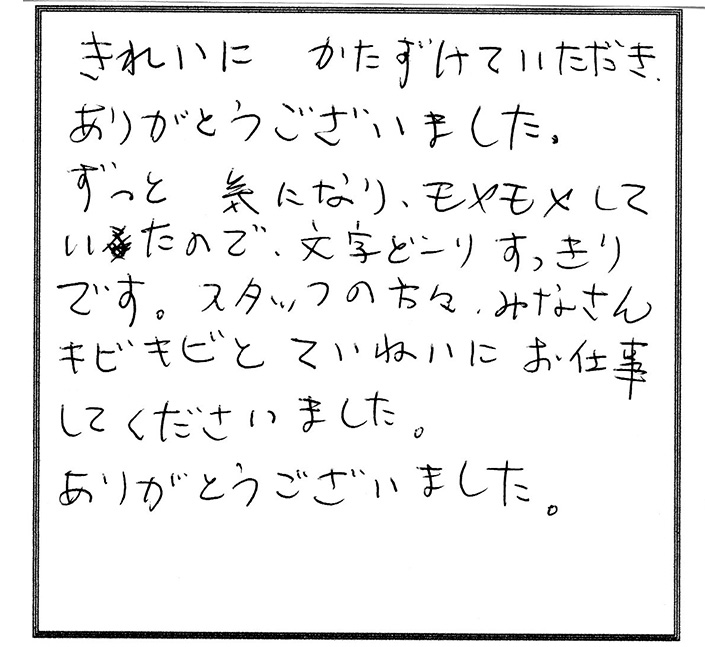 きれいに かたずけていただき、
ありがとうございました。
ずっと 気になり、モヤモヤして
いたので、文字どーりすっきり
です。スタッフの方々、みなさん
キビキビと ていねいに お仕事
してくださいました。
ありがとうございました。